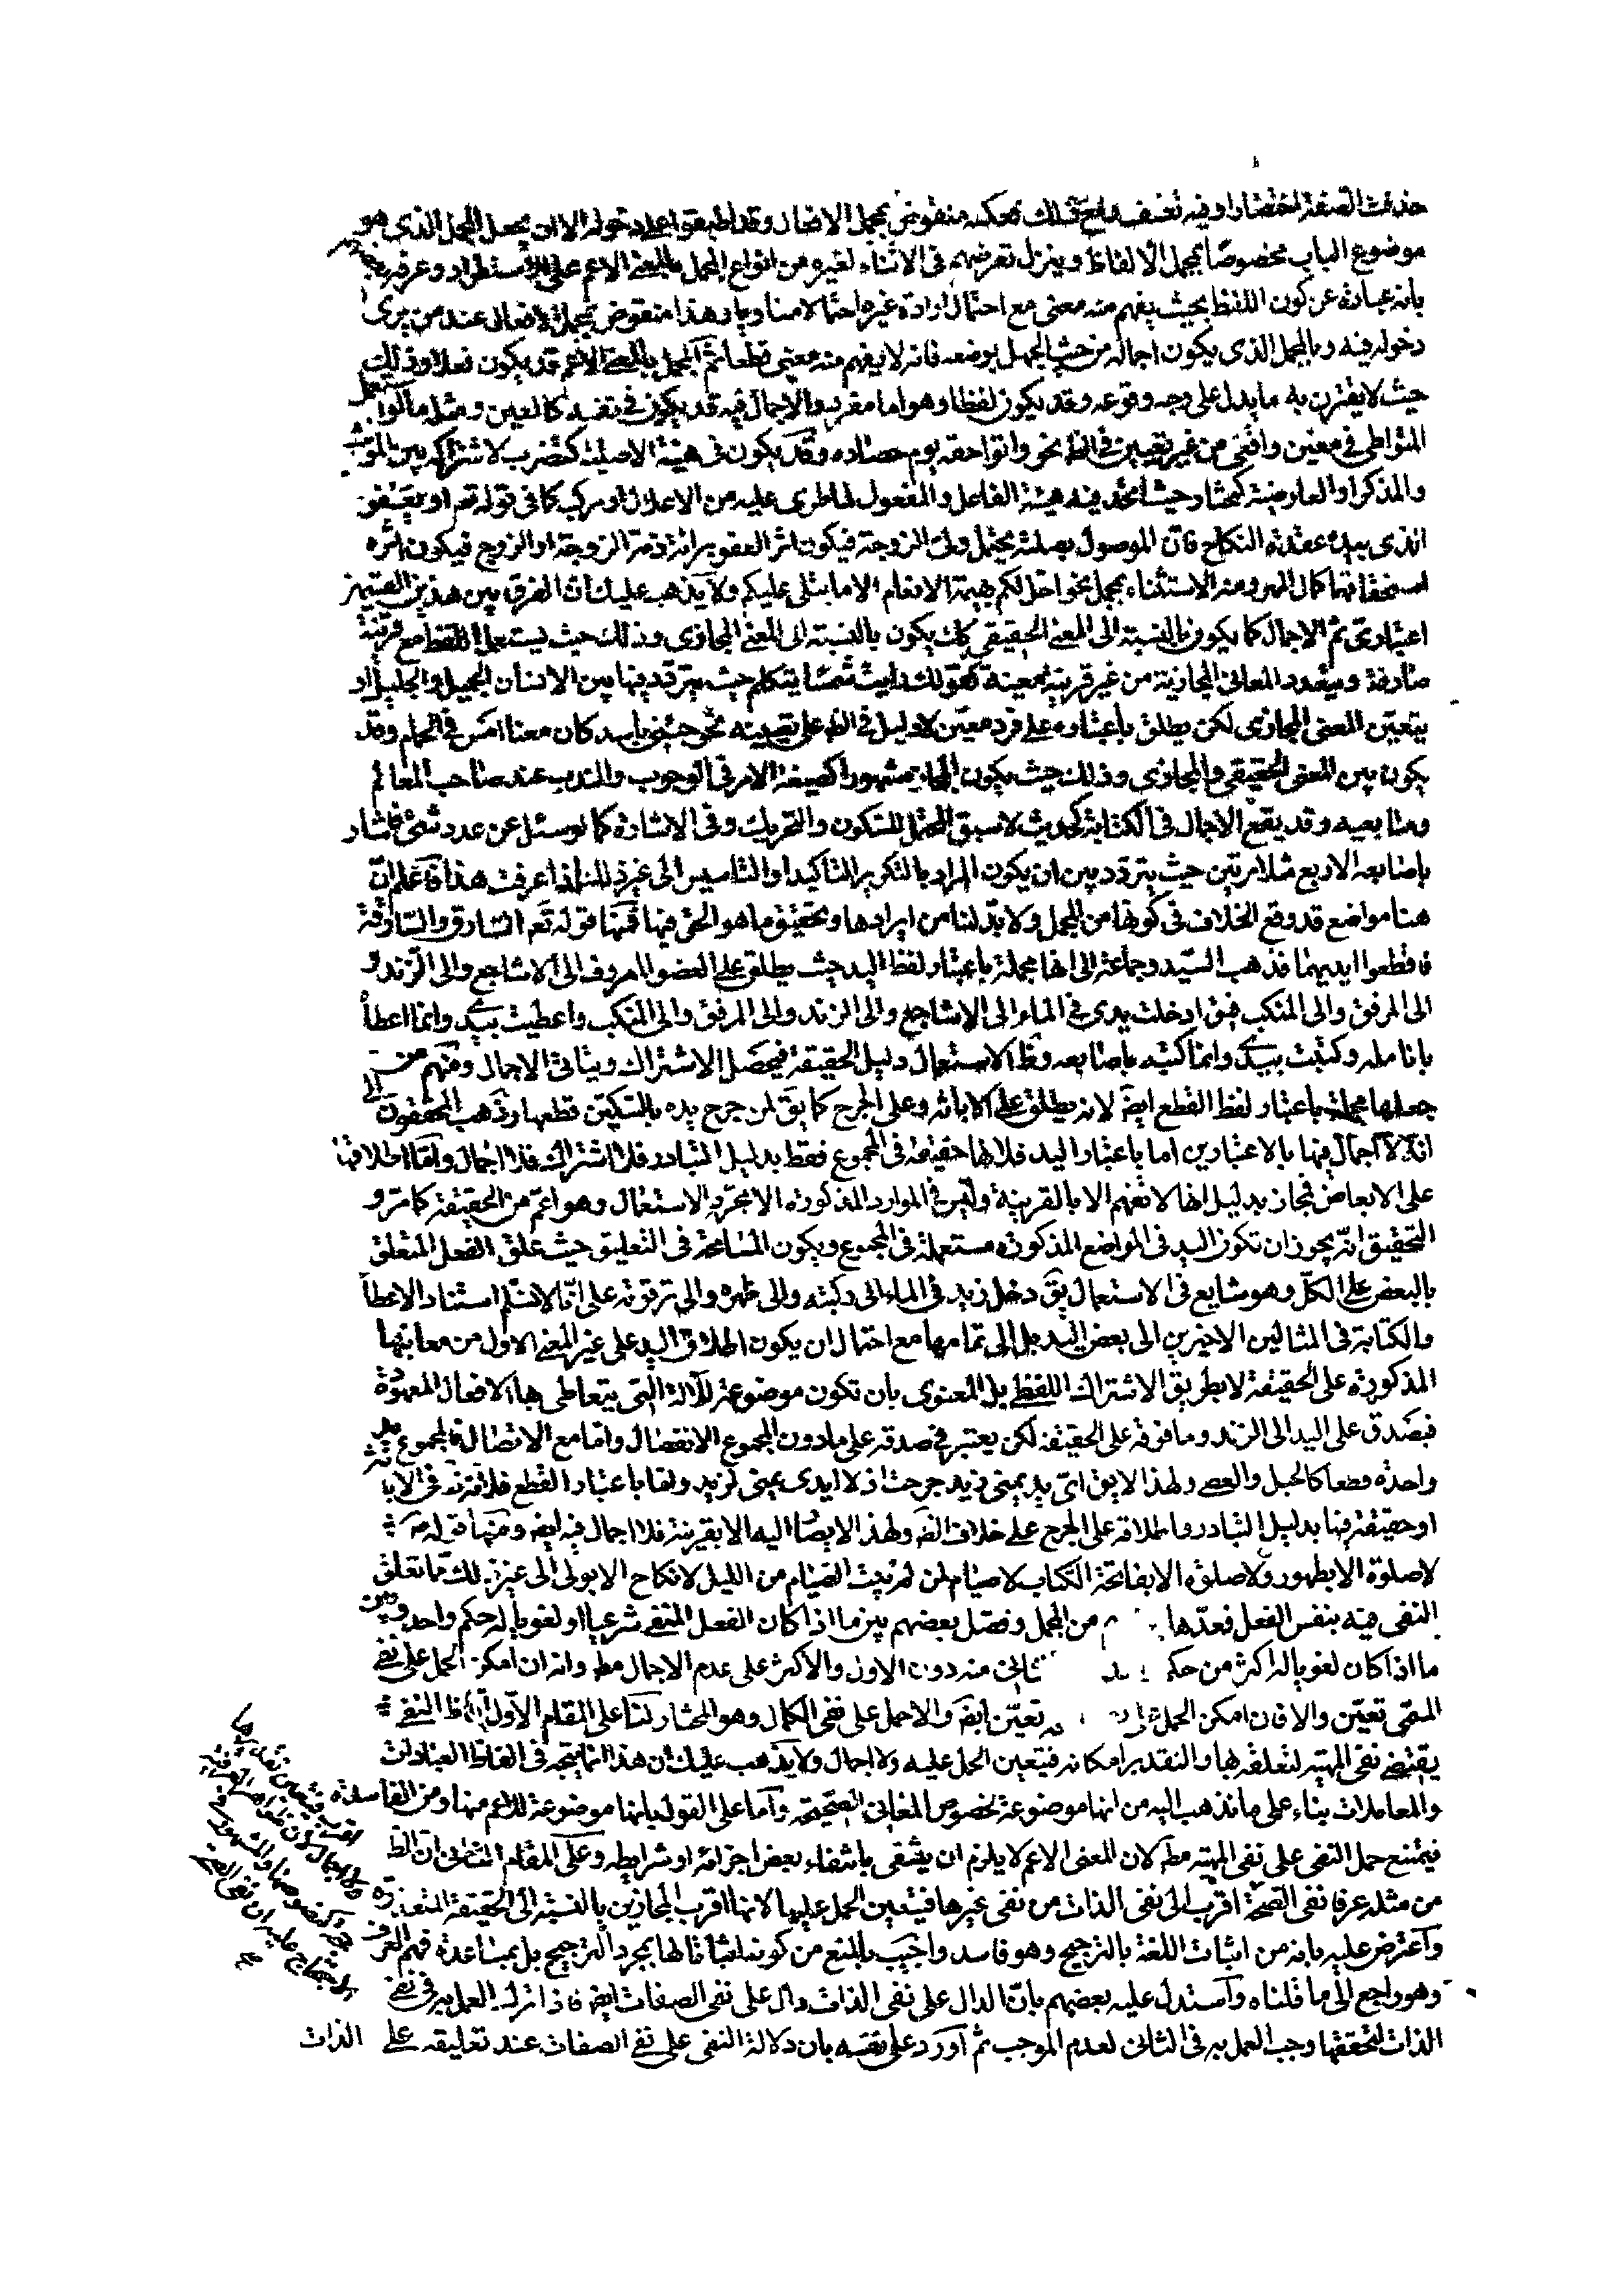 حذفت الصفة اختصارا وفيه تعسف ومع ذلك فعكسه منقوض بمجمل الافعال وقد اطبقوا على دخوله الا ان يجعل المجمل الذى هو
موضوع الباب مخصوصا بمجمل الالفاظ وينزل تعرضهم فى الاثناء لغيره من انواع المجمل بالمعنى الاعم على الاستطراد وعرفه
بانه عبارة عن كون اللفظ بحيث يفهم منه معنى مع احتمال ارادة غيره احتمالا مساويا وهذا منقوض بمجمل الافعال عند من يرى
دخوله فيه وبالمجمل الذى يكون اجماله من حيث الجهل بوضعه فانه لا يفهم منه معنى قطعا ثم المجمل بالمعنى الاعم قد يكون فعلا وذلك
حيث لا يقترن به ما يدل على وجه وقوعه وقد يكون لفظا وهو اما مفرد والاجمال فيه قد يكون فى نفسه كالعين ومثله ما لو استعمل
المتواطى فى معين واقعى من غير تعيين فى الظ نحو واتوا حقه يوم حصاده وقد يكون فى هيئته الاصلية كتضرب لاشتراكه بين المؤنث
والمذكر او العارضية كمختار حيث اتحد فيه هيئة الفاعل والمفعول لما طرى عليه من الاعلال او مركب كما فى قوله تعم او يعفو
الذى بيده عقدة النكاح فان الموصول بصلته يحتمل ولى الزوجة فيكون اثر العفو برائة ذمة الزوجة او الزوج فيكون اثره
استحقاقها كمال المهر ومنه الاستثناء بمجمل نحو احل لكم بهيمة الانعام الا ما يتلى عليكم ولا يذهب عليك ان الفرق بين هذين القسمين
اعتبارى ثم الاجمال كما يكون بالنسبة الى المعنى الحقيقى كك يكون بالنسبة الى المعنى المجازى وذلك حيث يستعمل اللفظ مع قرينة
صارفة ويتعدد المعانى المجازية من غير قرينة معينة كقولك رايت شمسا يتكلم حيث يتردد فيها بين الانسان الجميل والجليل او
يتعين المعنى المجازى لكن يطلق باعتباره على فرد معين لا دليل فى الظ على تعيينه نحو جئنى باسد كان معنا امس فى الحمام وقد
يكون بين المعنى الحقيقى والمجازى وذلك حيث يكون المجاز مشهورا كصيغة الامر فى الوجوب والندب عند صاحب المعالم
ومتابعيه وقد يقع الاجمال فى الكتابة كحديث لا سبق المحتمل للسكون والتحريك وفى الاشارة كما لو سئل عن عدد شئ فاشار
باصابعه الاربع مثلا مرتين حيث يتردد بين ان يكون المراد بالتكرير التاكيد او التاسيس الى غير ذلك اذا عرفت هذا فاعلم ان
هنا مواضع قد وقع الخلاف فى كونها من المجمل ولا بد لنا من ايرادها وتحقيق ما هو الحق فيها فمنها قوله تعم السارق والسارقة
فاقطعوا ايديهما فذهب السيد وجماعة الى انها مجملة باعتبار لفظ اليد حيث يطلق على العضو المعروف الى الاشاجع والى الزند و
الى المرفق والى المنكب فيق ادخلت يدى فى الماء الى الاشاجع والى الزند والى المرفق والى المنكب واعطيت بيدى وانما اعطا
بانامله وكتبت بيدى وانما كتبه باصابعه وظ الاستعمال دليل الحقيقة فيحصل الاشتراك وياتى الاجمال ومنهم من
جعلها مجملة باعتبار لفظ القطع ايضا لانه يطلق على الابانة وعلى الجرح كما يق لمن جرح يده بالسكين قطعها وذهب المحققون الى
انه لا اجمال فيها بالاعتبارين اما باعتبار اليد فلانها حقيقة فى المجموع فقط بدليل التبادر فلا اشتراك فلا اجمال واما اطلاقها
على الابعاض فمجاز بدليل انها لا تفهم الا بالقرينة وليس فى الموارد المذكورة الا مجرد الاستعمال وهو اعم من الحقيقة كما مر و
التحقيق انه يجوز ان تكون اليد فى المواضع المذكورة مستعملة فى المجموع ويكون المسامحة فى التعليق حيث علق الفعل المتعلق
بالبعض على الكل وهو شايع فى الاستعمال يق دخل زيد فى الماء الى ركبته والى ظهره والى ترقوته على انا لا نسلم استناد الاعطا
والكتابة فى المثالين الاخيرين الى بعض اليد بل الى تمامها مع احتمال ان يكون اطلاق اليد على غير المعنى الاول من معانيها
المذكورة على الحقيقة لا بطريق الاشتراك اللفظى بل المعنوى بان تكون موضوعة للآلة التى يتعاطى بها الافعال المعهودة
فيصدق على اليد الى الزند وما فوقه على الحقيقة لكن يعتبر فى صدقه على ما دون المجموع الانفصال واما مع الاتصال فالمجموع يد
واحدة قطعا كالحبل والعصى ولهذا لا يق اى يد يمنى زيد جرحت اذ لا ايدى يمنى لزيد واما باعتبار القطع فلانه فى الابانة
او حقيقة فيها بدليل التبادر واطلاقه على الجرح على خلاف الظ ولهذا لا يصار اليه الا بقرينة فلا اجمال فيه ايضا ومنها قوله ص
لا صلوة الا بطهور ولا صلوة الا بفاتحة الكتاب لا صيام لمن لم يبيت الصيام من الليل لا نكاح الا بولى الى غير ذلك مما تعلق
النفى فيه بنفس الفعل فعدها من المجمل وفصل بعضهم بين ما اذا كان الفعل المنفى شرعيا او لغويا له حكم واحد وبين
ما اذا كان لغويا له اكثر من حكم ثانى منه دون الاول والاكثر على عدم الاجمال مط وانه ان امكن الحمل على نفى
المسمى تعين والا فان امكن الحمل على تعين ايضا والا حمل على نفى الكمال وهو المختار لنا على المقام الاول ان ظ النفى
يقتضى نفى المهية لتعلقه بها والتقدير امكانه فيتعين الحمل عليه ولا اجمال ولا يذهب عليك ان هذا انما يتجه فى الفاظ العبادات
والمعاملات بناء على ما نذهب اليه من انها موضوعة لخصوص المعانى الصحيحة واما على القول بانها موضوعة للاعم منها ومن الفاسدة
فيمتنع حمل النفى على نفى المهية مط لان المعنى الاعم لا يلزم ان ينتفى بانتفاء بعض اجزائه او شرايطه وعلى المقام الثانى ان الظ
من مثله عرفا نفى الصحة اقرب الى نفى الذات من نفى غيرها فيتعين الحمل عليها لانها اقرب المجازين بالنسبة الى الحقيقة المتعذرة
واعترض عليه بانه من اثبات اللغة بالترجيح وهو فاسد واجيب بالمنع من كونه اثباتا لها بمجرد الترجيح بل بمساعدة فهم العرف
وهو راجع الى ما قلناه واستدل عليه بعضهم بان الدال على نفى الذات دال على نفى الصفات ايضا فاذا ترك العمل به فى نفى
الذات لتحققها وجب العمل به فى الثانى لعدم الموجب ثم اورد على نفسه بان دلالة النفى على نفى الصفات عند تعليقه على الذات